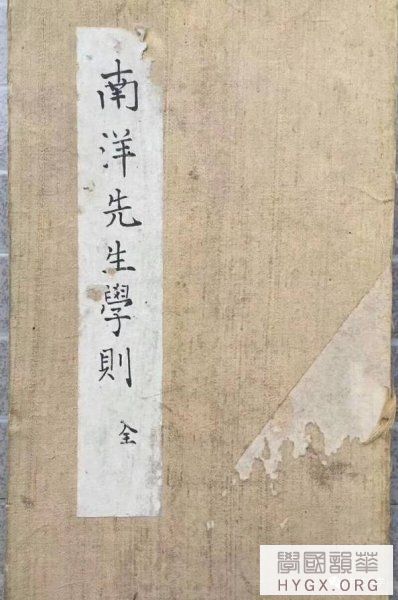 南洋先生學則 全
華韻國學
HYGX.ORG